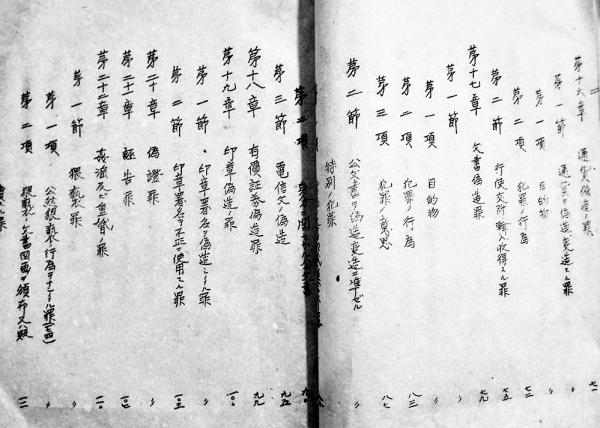 第十六章 通貨偽造ノ罪 七一
第一節 通貨ヲ偽造変造スル罪 〃
第一項 目的物 〃
第二項 犯罪ノ行為 七三
第二節 行使交附輸入収得スル罪 七五
第十七章 文書偽造罪 七九
第一節 〃
第一項 目的物 〃
第二項 犯罪ノ行為 八三
第三項 犯罪ノ意思 八七
第二節 公文書ヲ偽造変造ニ準ゼル特別ノ犯罪 〃
第三節 電信文ノ偽造 九五
第十八章 有價証券偽造罪 九九
第十九章 印章偽造ノ罪 一〇〇
第一節 印章署名ヲ偽造シタル罪 〃
第二節 印章署名ヲ不正ニ使用スル罪 一〇三
第二十章 偽證罪 〃
第二十一章 誣告罪
第二十二章 姦淫及ビ重婚ノ罪
第一節 猥褻罪 〃
第一項 公然猥褻ノ行為ヲナシタル罪(一七四) 〃
第二項 猥褻ノ文書図画ヲ頒布又ハ販